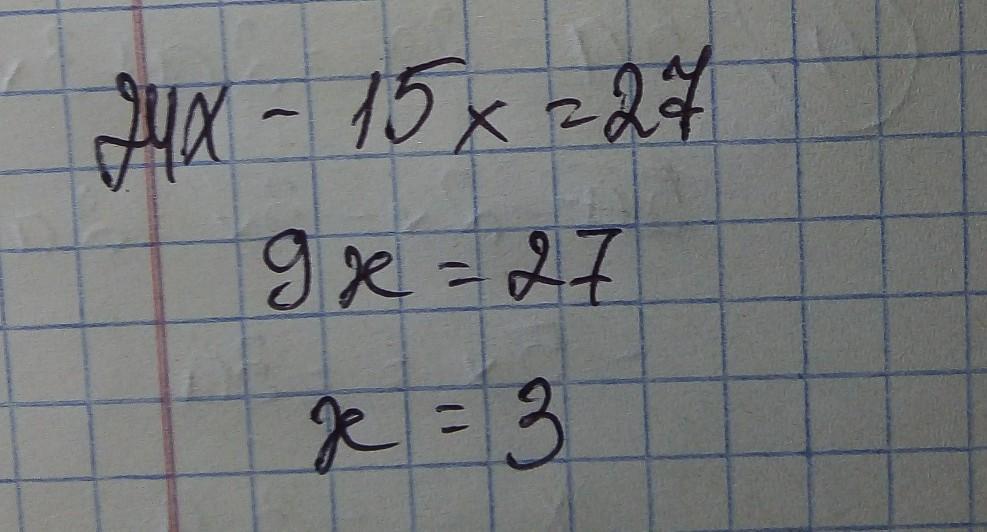 24x - 15x = 27
9x = 27
x = 3